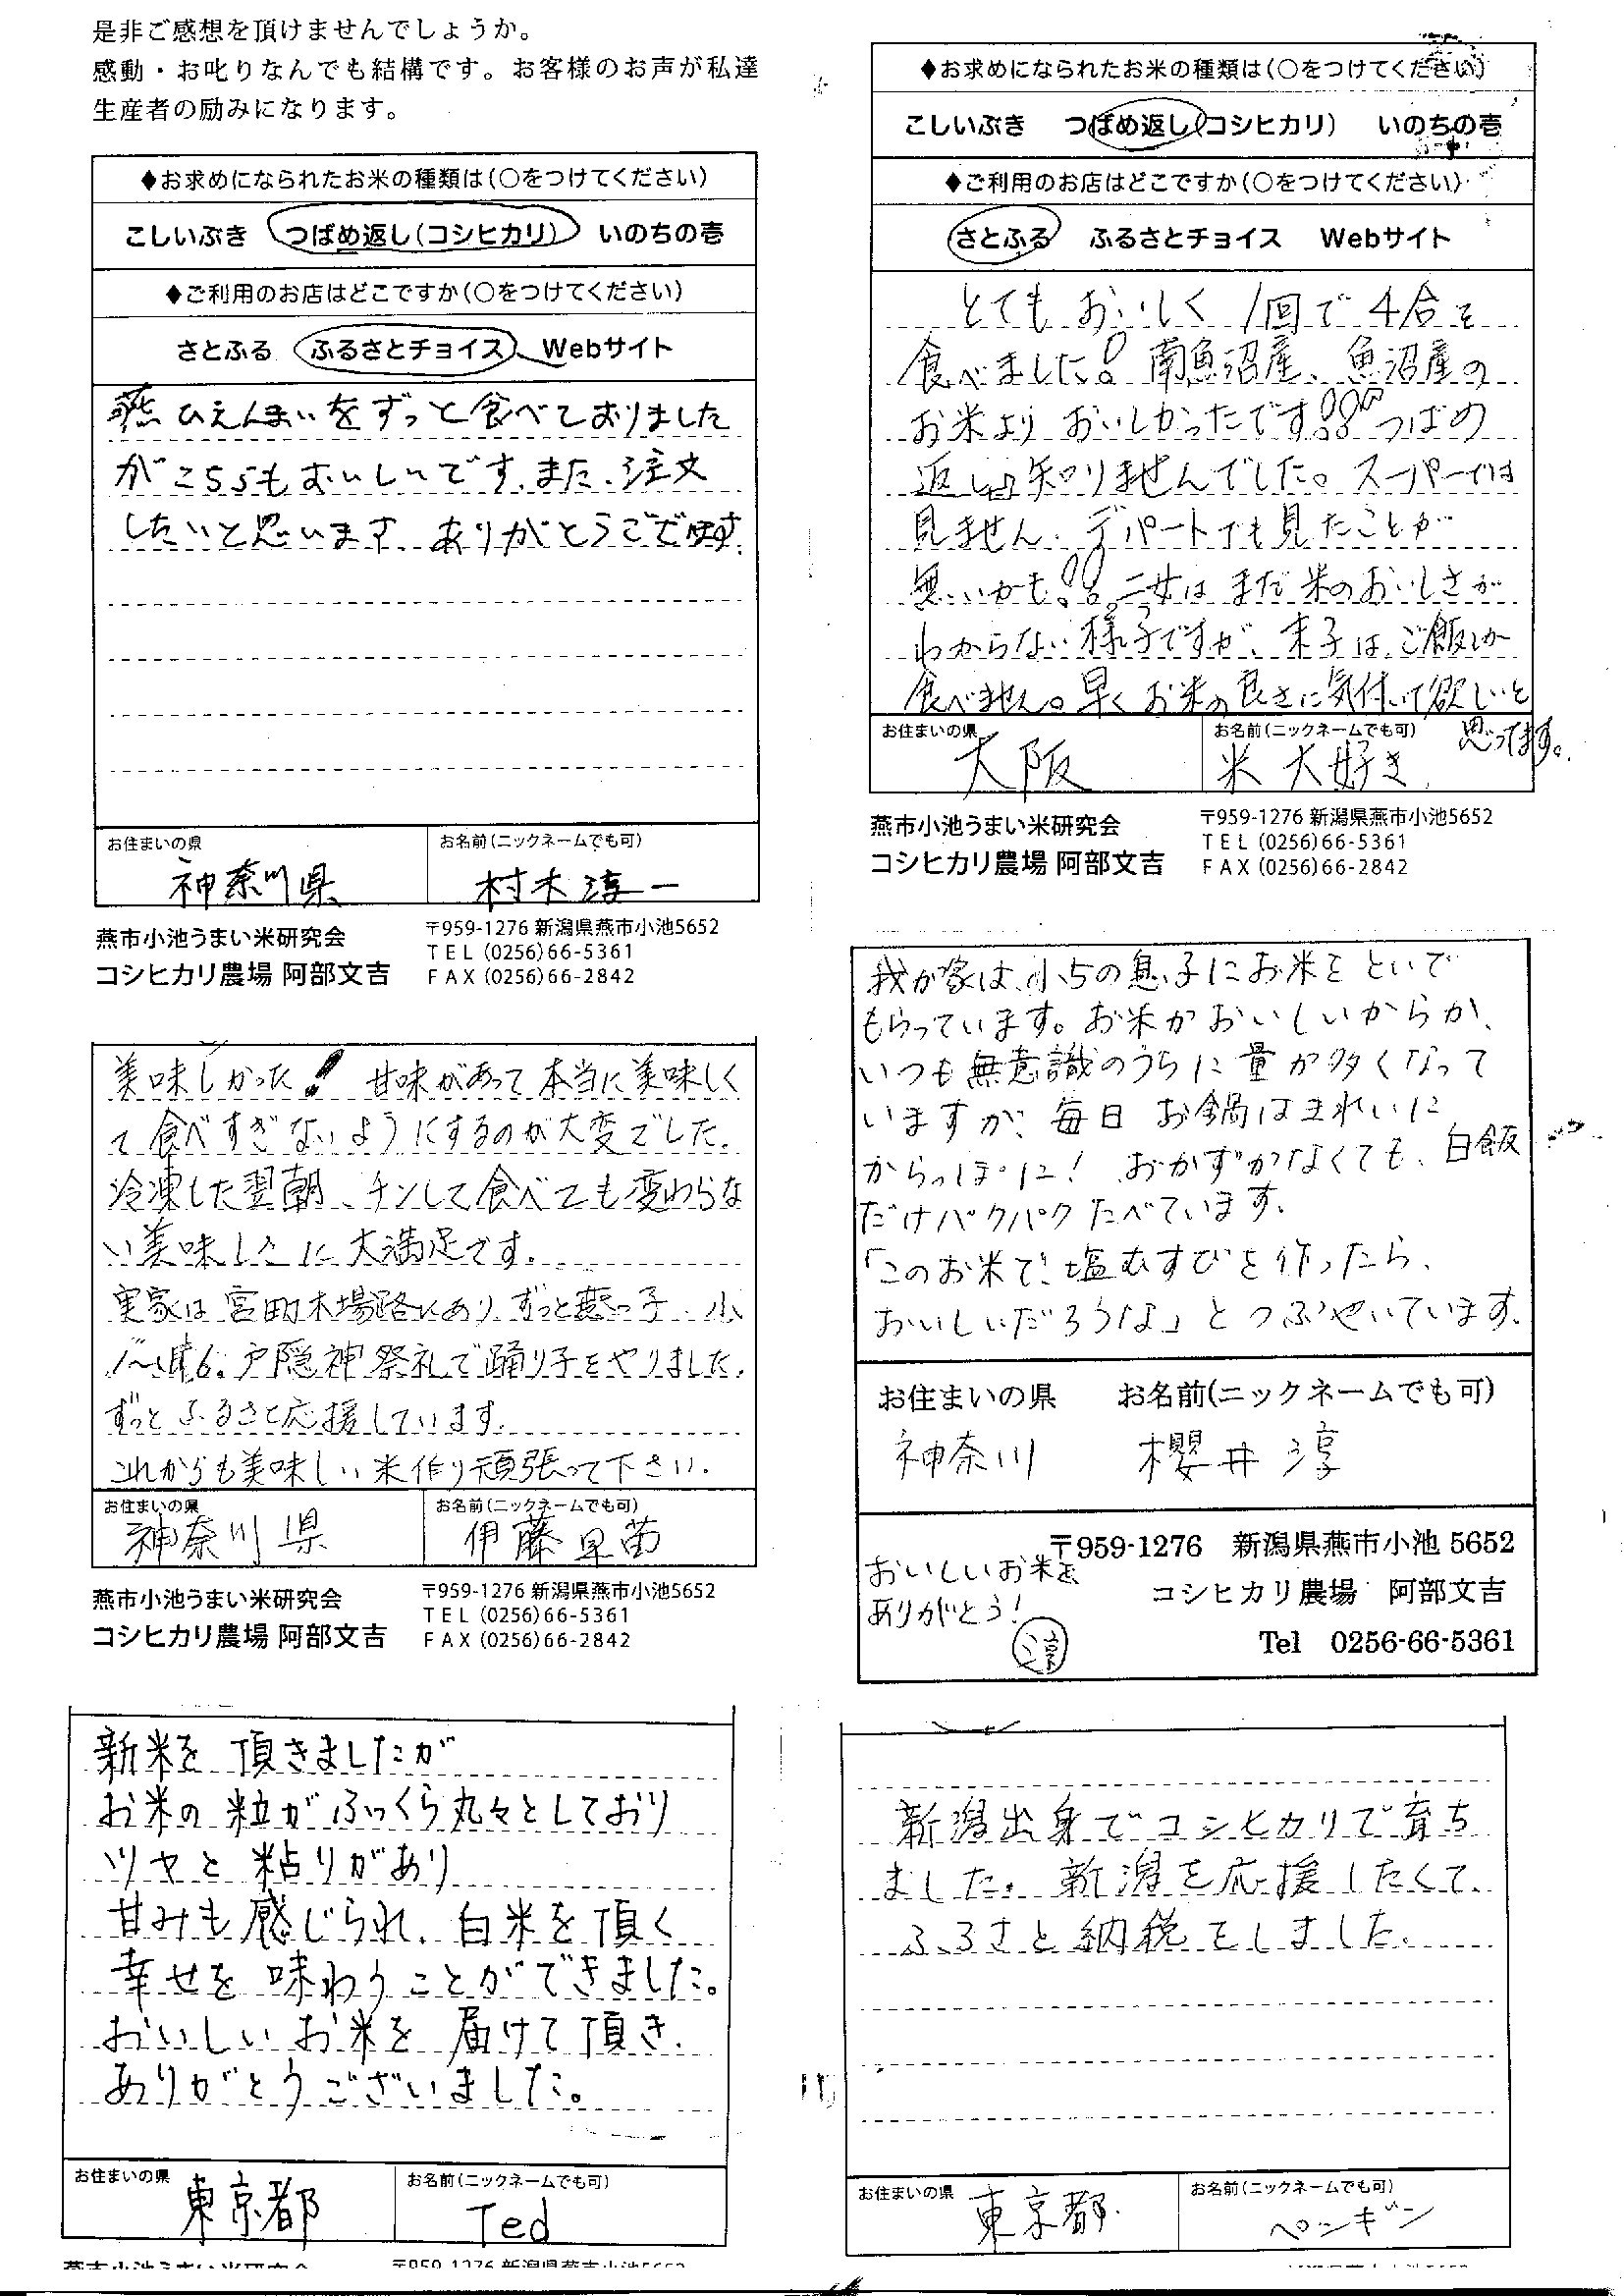 是非ご感想を頂けませんでしょうか。
感動・お叱りなんでも結構です。お客様のお声が私達
生産者の励みになります。
◆お求めになられたお米の種類は(○をつけてください)
こしいぶき つばめ返し(コシヒカリ) いのちの壱
◆ご利用のお店はどこですか(○をつけてください)
さとふる ふるさとチョイス Webサイト
燕ひえんまいをずっと食べておりました
がこちらもおいしいです。また、注文
したいと思います。ありがとうございます。
お住まいの県 お名前(ニックネームでも可)
神奈川県 村木淳一
燕市小池うまい米研究会
コシヒカリ農場 阿部文吉
〒959-1276 新潟県燕市小池5652
TEL (0256)66-5361
FAX (0256)66-2842
◆お求めになられたお米の種類は(○をつけてください)
こしいぶき つばめ返し(コシヒカリ) いのちの壱
◆ご利用のお店はどこですか(○をつけてください)
さとふる ふるさとチョイス Webサイト
とてもおいしく1回で4合を
食べました!南魚沼産、魚沼産の
お米よりおいしかったです!!!つばめ
返しは知りませんでした。スーパーでは
見ません。デパートでも見たことが
無いかも!!二女はまだ米のおいしさが
わからない様子ですが、末子はご飯しか
食べません。早くお米の良さに気付いて欲しいと
思ってます。
お住まいの県 お名前(ニックネームでも可)
大阪 米大好き
燕市小池うまい米研究会
コシヒカリ農場 阿部文吉
〒959-1276 新潟県燕市小池5652
TEL (0256)66-5361
FAX (0256)66-2842
美味しかった! 甘味があって本当に美味しく
て食べすぎないようにするのが大変でした。
冷凍した翌朝、チンして食べても変わらな
い美味しさに大満足です。
実家は宮町木場路にあり、ずっと燕っ子、小
戸隠神祭礼で踊り子をやりました。
ずっとふるさと応援しています。
これからも美味しい米作り頑張って下さい。
お住まいの県 お名前(ニックネームでも可)
神奈川県 伊藤早苗
燕市小池うまい米研究会
コシヒカリ農場 阿部文吉
〒959-1276 新潟県燕市小池5652
TEL (0256)66-5361
FAX (0256)66-2842
我が家は、小5の息子にお米をといで
もらっています。お米がおいしいからか、
いつも無意識のうちに量が多くなって
いますが、毎日お鍋はきれいに
からっぽに! おかずがなくても、白飯
だけパクパクたべています。
「このお米で、塩むすびを作ったら、
おいしいだろうな」とつぶやいています。
お住まいの県 お名前(ニックネームでも可)
神奈川 櫻井淳
〒959-1276 新潟県燕市小池 5652
コシヒカリ農場 阿部文吉
Tel 0256-66-5361
おいしいお米を
ありがとう!
淳
新米を頂きましたが
お米の粒がふっくら丸々としており
ツヤと粘りがあり
甘みも感じられ、白米を頂く
幸せを味わうことができました。
おいしいお米を届けて頂き、
ありがとうございました。
お住まいの県 お名前(ニックネームでも可)
東京都 Ted
新潟出身でコシヒカリで育ち
ました。新潟を応援したくて、
ふるさと納税をしました。
お住まいの県 お名前(ニックネームでも可)
東京都 ペンギン